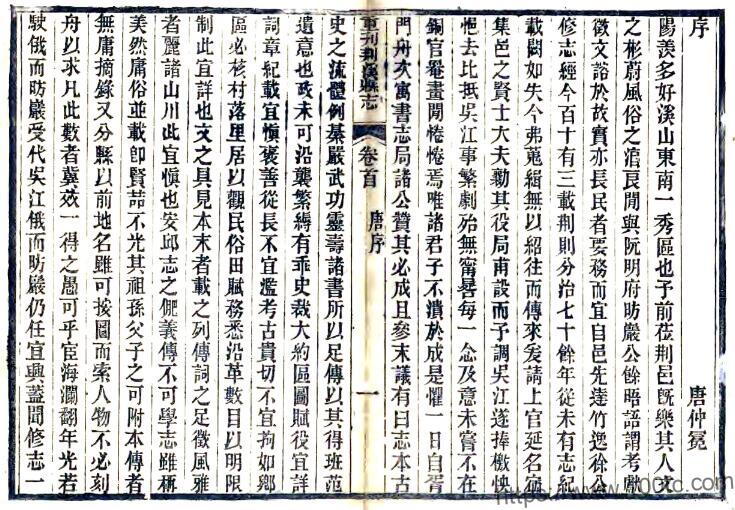 序 唐仲冕
陽羨多好溪山東南一秀區也予前莅荆邑旣樂其人文
之彬蔚風俗之涫良閒與阮明府昉巖公餘晤語謂考獻
徵文諮於故實亦長民者要務而宜自邑先達竹逸徐公
修志經今百十有三載荆則分治七十餘年從未有志紀
載闕如失今弗蒐緝無以紹往而傳來爰請上官延名宿
集邑之賢士大夫勷其役局甫設而予調吳江遂捧檄怏
悒去比抵吳江事繁劇殆無甯晷每一念及意未嘗不在
銅官罨畫閒惓惓焉唯諸君子不潰於成是懼一日自胥
門舟次寓書志局諸公贊其必成且參末議有曰志本古
重刊荆溪縣志 卷首 唐序 一
史之流體例綦嚴武功靈壽諸書所以足傳以其得班范
遺意也政未可沿襲繁縟有乖史裁大約區圖賦役宜詳
詞章紀載宜愼褒善從長不宜濫考古貴切不宜拘如鄉
區必核村落里居以觀民俗田賦務悉沿革數目以明限
制此宜詳也文之具見本末者載之列傳詞之足徵風雅
者麗諸山川此宜愼也安邱志之俪義傳不可學志雖稱
美然庸俗並載卽賢喆不光其祖孫父子之可附本傳者
無庸摘錄又分縣以前地名雖可按圖而索人物不必刻
舟以求凡此數者冀效一得之愚可乎宦海瀾翻年光若
駛俄而昉巖受代吳江俄而昉巖仍任宜興蓋聞修志一